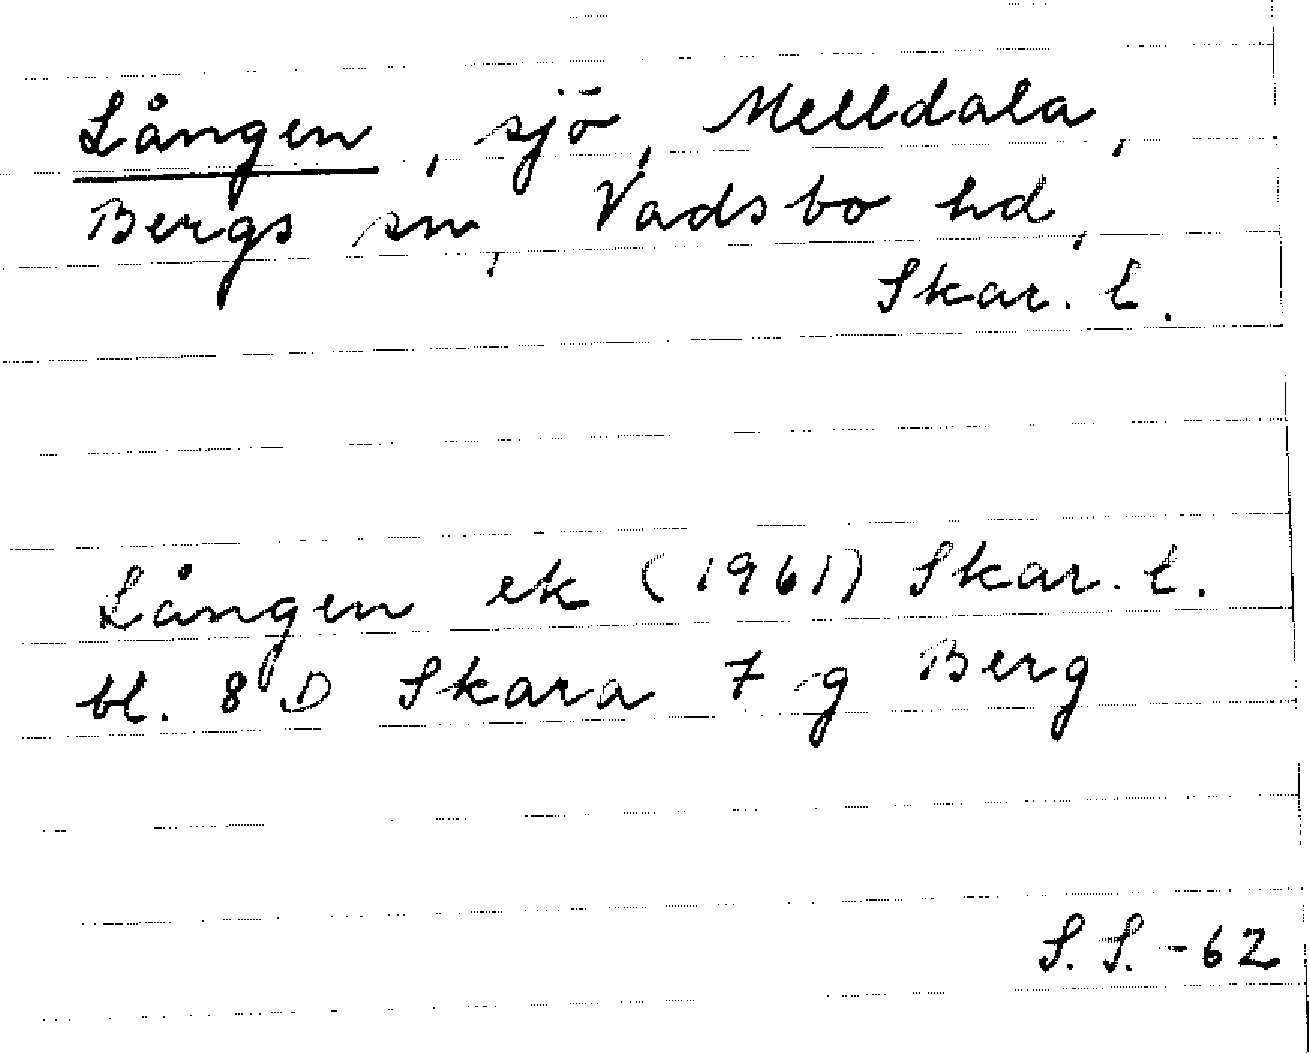 Lången, sjö, Melldala,
Bergs sn, Vadsbo hd,
Skar. l.
Lången ek (1961) Skar. l.
bl. 8 D Skara 7 g Berg
S. S. -62